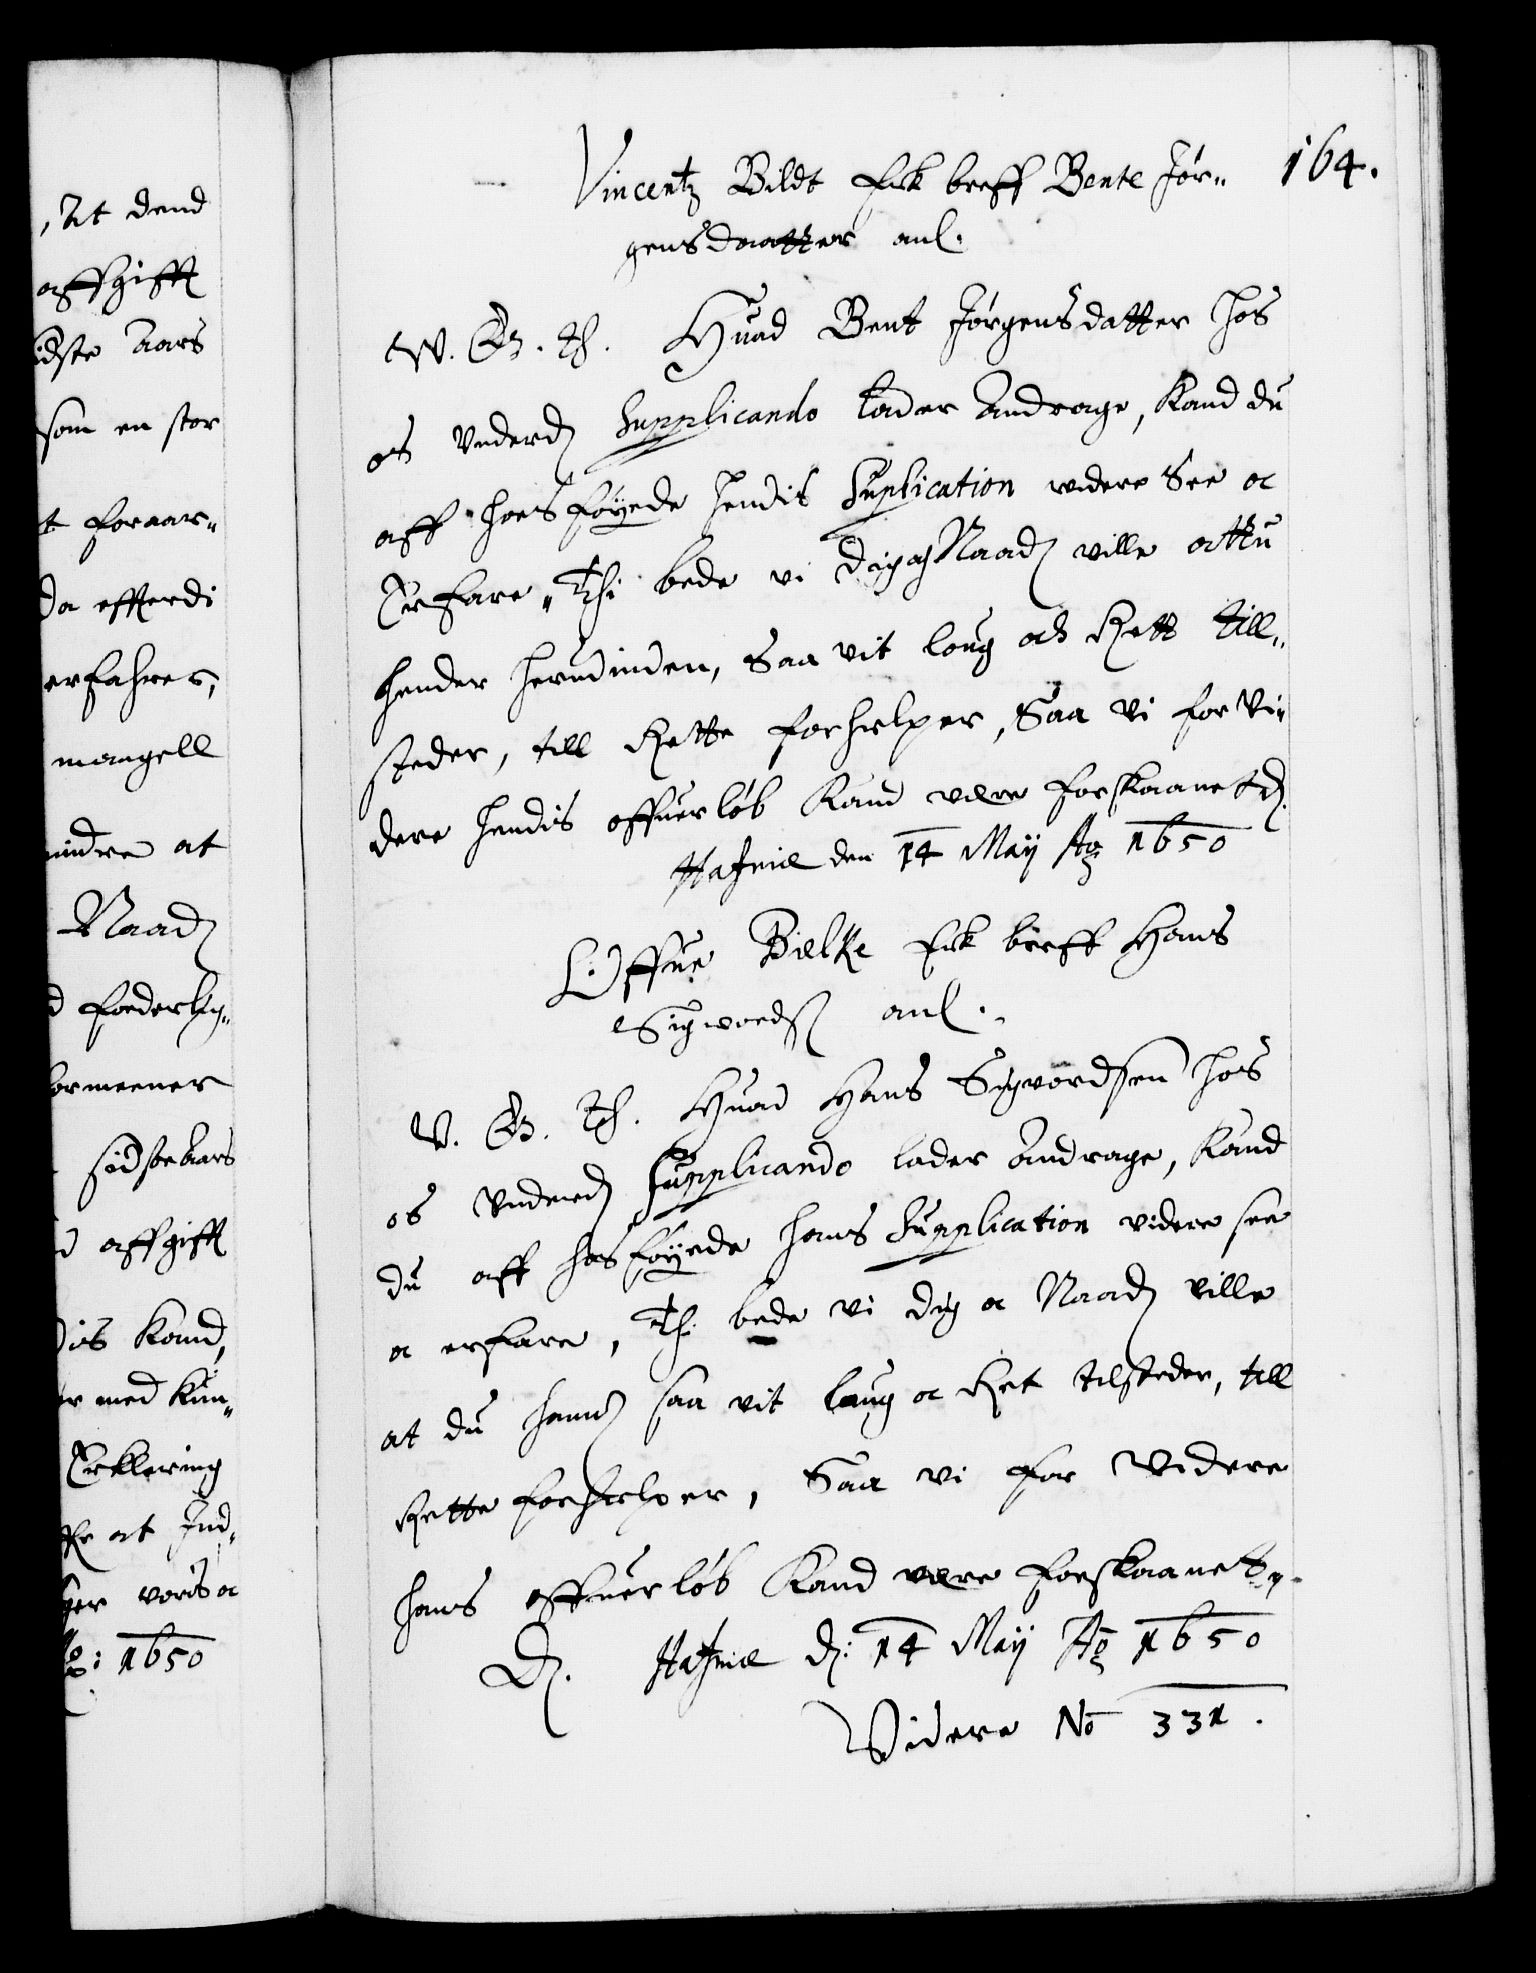 , At dend
affgifft
idste Aars
som en stor
t foraar„
da effterdi
erfahres,
mangell
mindre at
Naad
d foderlig„
ormeener
sidste Aars
d affgifft
dis Kand,
er med Kun„
Erklering
ffe at Ind„
ger voris a
Ao: 1650
164.
Vincentz Bildt fik breff Bente Jør„
gensdaatter anl.
W. G. Th. Huad Bent Jørgensdatter hos
os Underd Supplicando lader Andrage, Kand du
aff hoesføyede hendis Suplication videre See oc
Erfare„ Thi bede vi dig oc Naad ville attu
hender herudinden, Saa vit loug och Rett till„
steder, till Rette forhielper, Saa vi for Vi„
dere hendis offuerløb Kand være forskaanet d.
Hafniæ den 14 Maij Ao 1650
H. Offue Bielke fik breff Hans
Sigvords anl.
V. G. Th. Huad Hans Sigvordsen hos
os Underd Supplicando lader Andrage, Kand
du aff hosføyede hans Supplication videre see
oc erfare, Thi bede vi dig oc Naad ville
at du hannd saa vit loug oc Ret tilsteder, till
Rette forhielper, Saa vi for Videre
hans offuerløb Kand være forskaanet„
D. Hafniæ d: 14 Maij Ao 1650
Videre No 331.